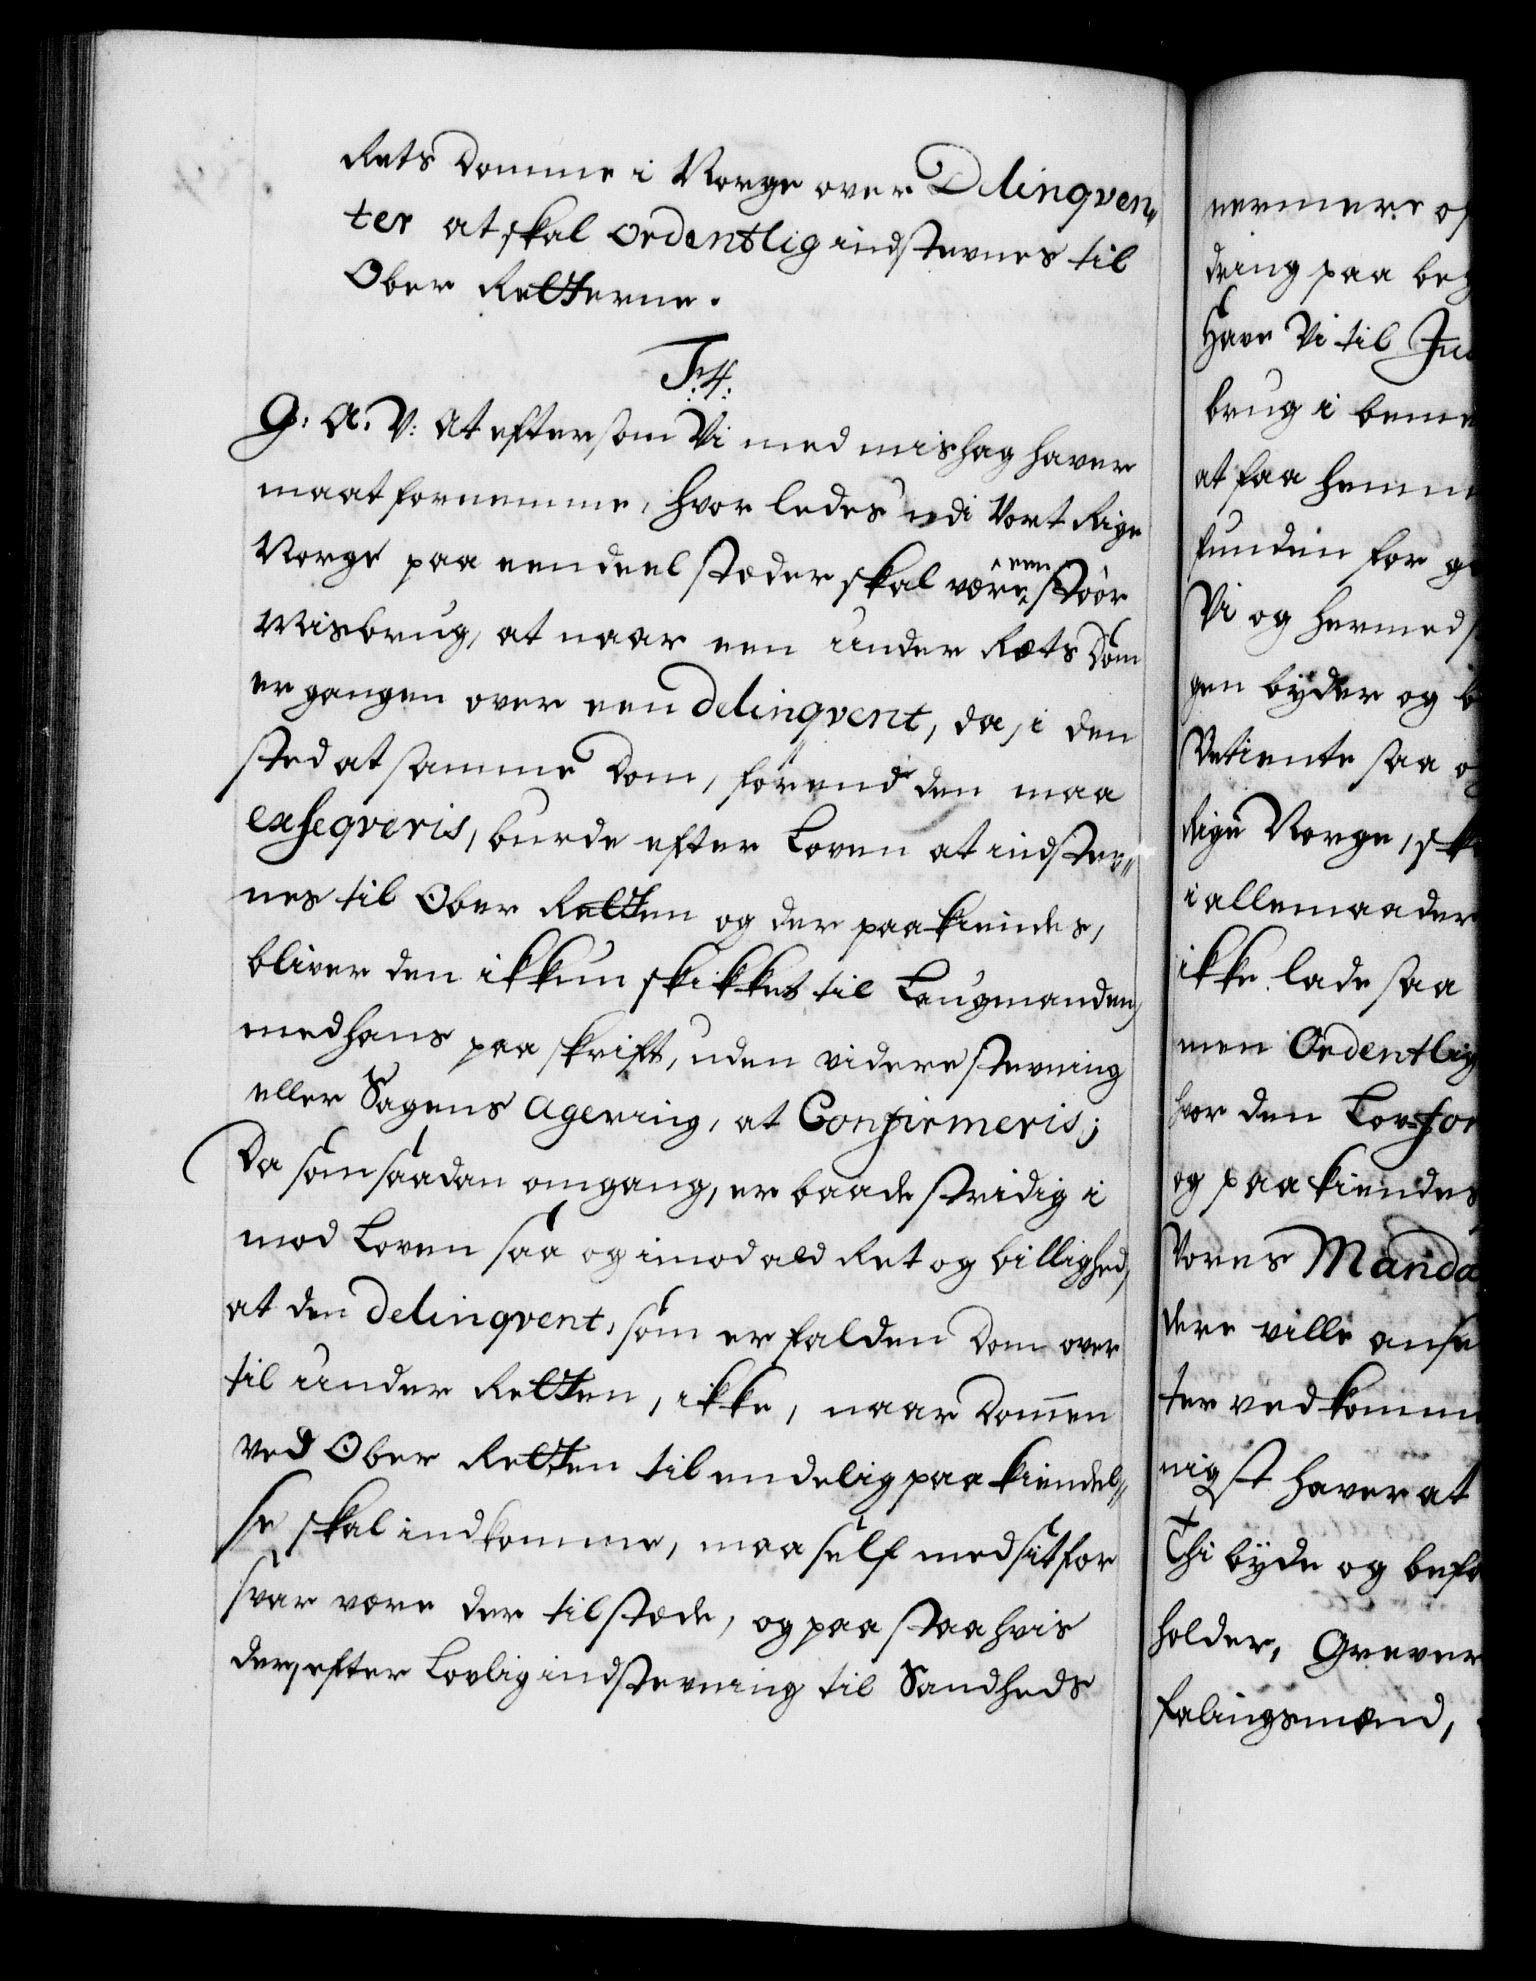 Rets Domme i Norge over Delinqven„
ter at skal ordentlig indstevnes til
Ober Retterne.
F: 4:
G: A. V: At eftersom Vi med mishag haver
maat fornemme, hvorledes udi Vort Rige
Norge paa eendeel stæder skal være een stoor
Misbrug, at naar een Under Rets Dom
er gangen over een Delinqvent, da, i den
sted at samme Dom, førend den maa
exseqveris, burde efter Loven at indstev„
nes til Ober Retten og der paakiendes,
bliver den ikkun skikket til Laugmanden,
med hans paaskrift, uden videre stevning
eller Sagens Agering, at Confirmeris;
Da som saadan omgang, er baade stridig i
mod Loven saa og imod ald Ret og billighed,
at den Delinqvent, som er falden Dom over
til Under Retten, ikke, naar Dommen
ved Ober Retten til endelig paakiendel„
se skal indkomme, maa self med sit for
svar være der tilstæde, og paastaa hvis
der, efter Lovlig indstevning til Sandheds
nermere op
dring paa beg
Have Vi til
brug i beme
at faa hemm
funden for g
Vi og hermed
gen byder og b
Rige Norge, sk
i allemaader
ikke lade saa
men Ordentlig
hvor den Lov-for
og paakiendes
Vores Manda
dere ville anse
ter vedkomm
nigst haver at
Thi byde og befa
holder, Grever
falingsmænd,